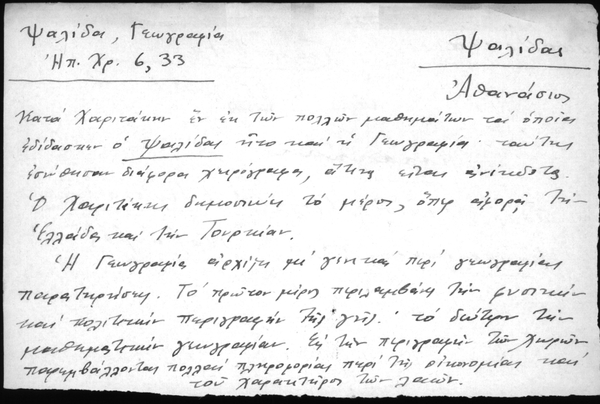 Ψαλίδα, Γεωγραφία
Ἠπ. Χρ. 6, 33
Ψαλίδας
Ἀθανάσιος
Κατά Χαριτάκην ἕν ἐκ τῶν πολλῶν μαθημάτων τά ὁποῖα
ἐδίδασκεν ὁ Ψαλίδας ἦτο καί ἡ Γεωγραφία· ταύτης
ἐσώθησαν διάφορα χειρόγραφα, ἅτινα εἶναι ἀνέκδοτα.
Ὁ Χαριτάκης δημοσιεύει τό μέρος, ὅπερ ἀφορᾷ τήν
Ἑλλάδα καί τήν Τουρκίαν.
Ἡ Γεωγραφία ἀρχίζει μέ γενικάς περί γεωγραφίας
παρατηρήσεις. Τό πρῶτον μέρος περιλαμβάνει τήν φυσικήν
καί πολιτικήν περιγραφήν τῆς γῆς· τό δεύτερον τήν
μαθηματικήν γεωγραφίαν. Εἰς τήν περιγραφήν τῶν χωρῶν
παρεμβάλλονται πολλαί πληροφορίαι περί τῆς οἰκονομίας καί
τοῦ χαρακτῆρος τῶν λαῶν.